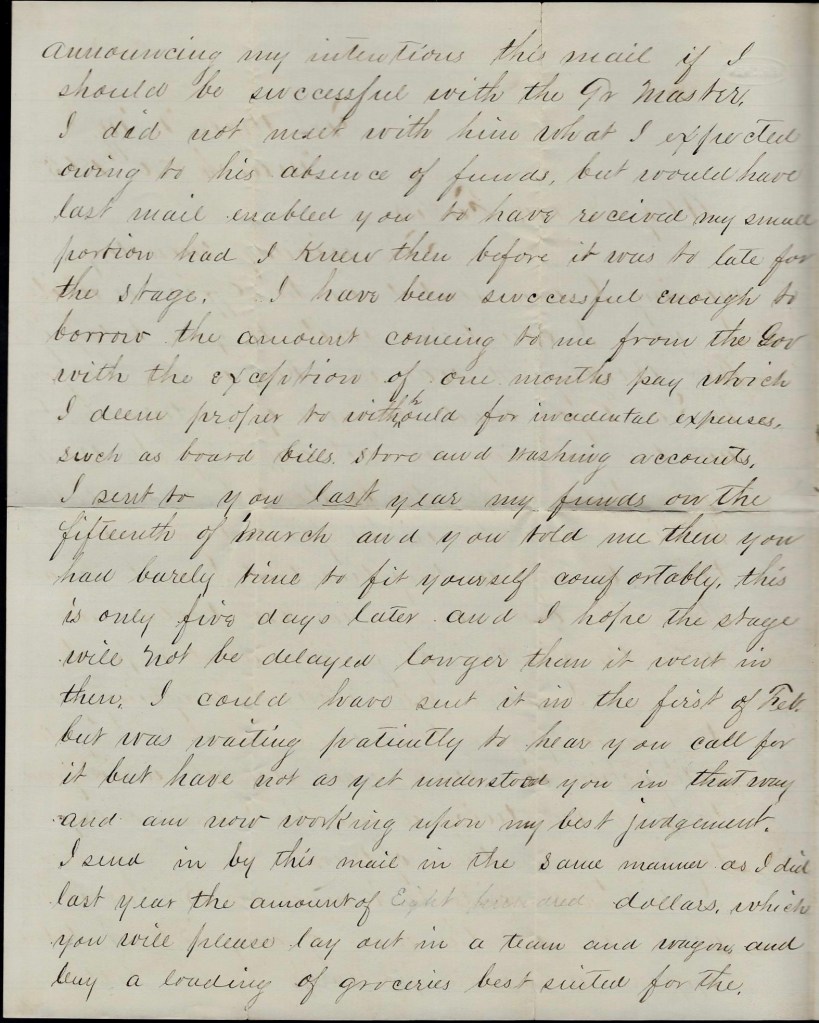 announcing my intentions this mail if I
should be successful with the Qr Master.
I did not meet with him what I expected
owing to his absence of funds, but would have
last mail enabled you to have received my small
portion had I knew then before it was to late for
the stage. I have been successful enough to
borrow the amount comeing to me from the Gov
with the exception of one months pay which
I deem proper to withhould for incidental expenses,
such as board bills. store and washing accounts.
I sent to you last year my funds on the
fifteenth of March and you told me then you
had barely time to fit yourself comfortably, this
is only five days later and I hope the stage
will not be delayed longer than it went in
then. I could have sent it in the first of Feb.
but was waiting patiently to hear you call for
it but have not as yet understood you in that way
and am now working upon my best judgement.
I send in by this mail in the same manner as I did
last year the amount of Eight hundred dollars, which
you will please lay out in a team and wagon, and
buy a loading of groceries best suited for the.